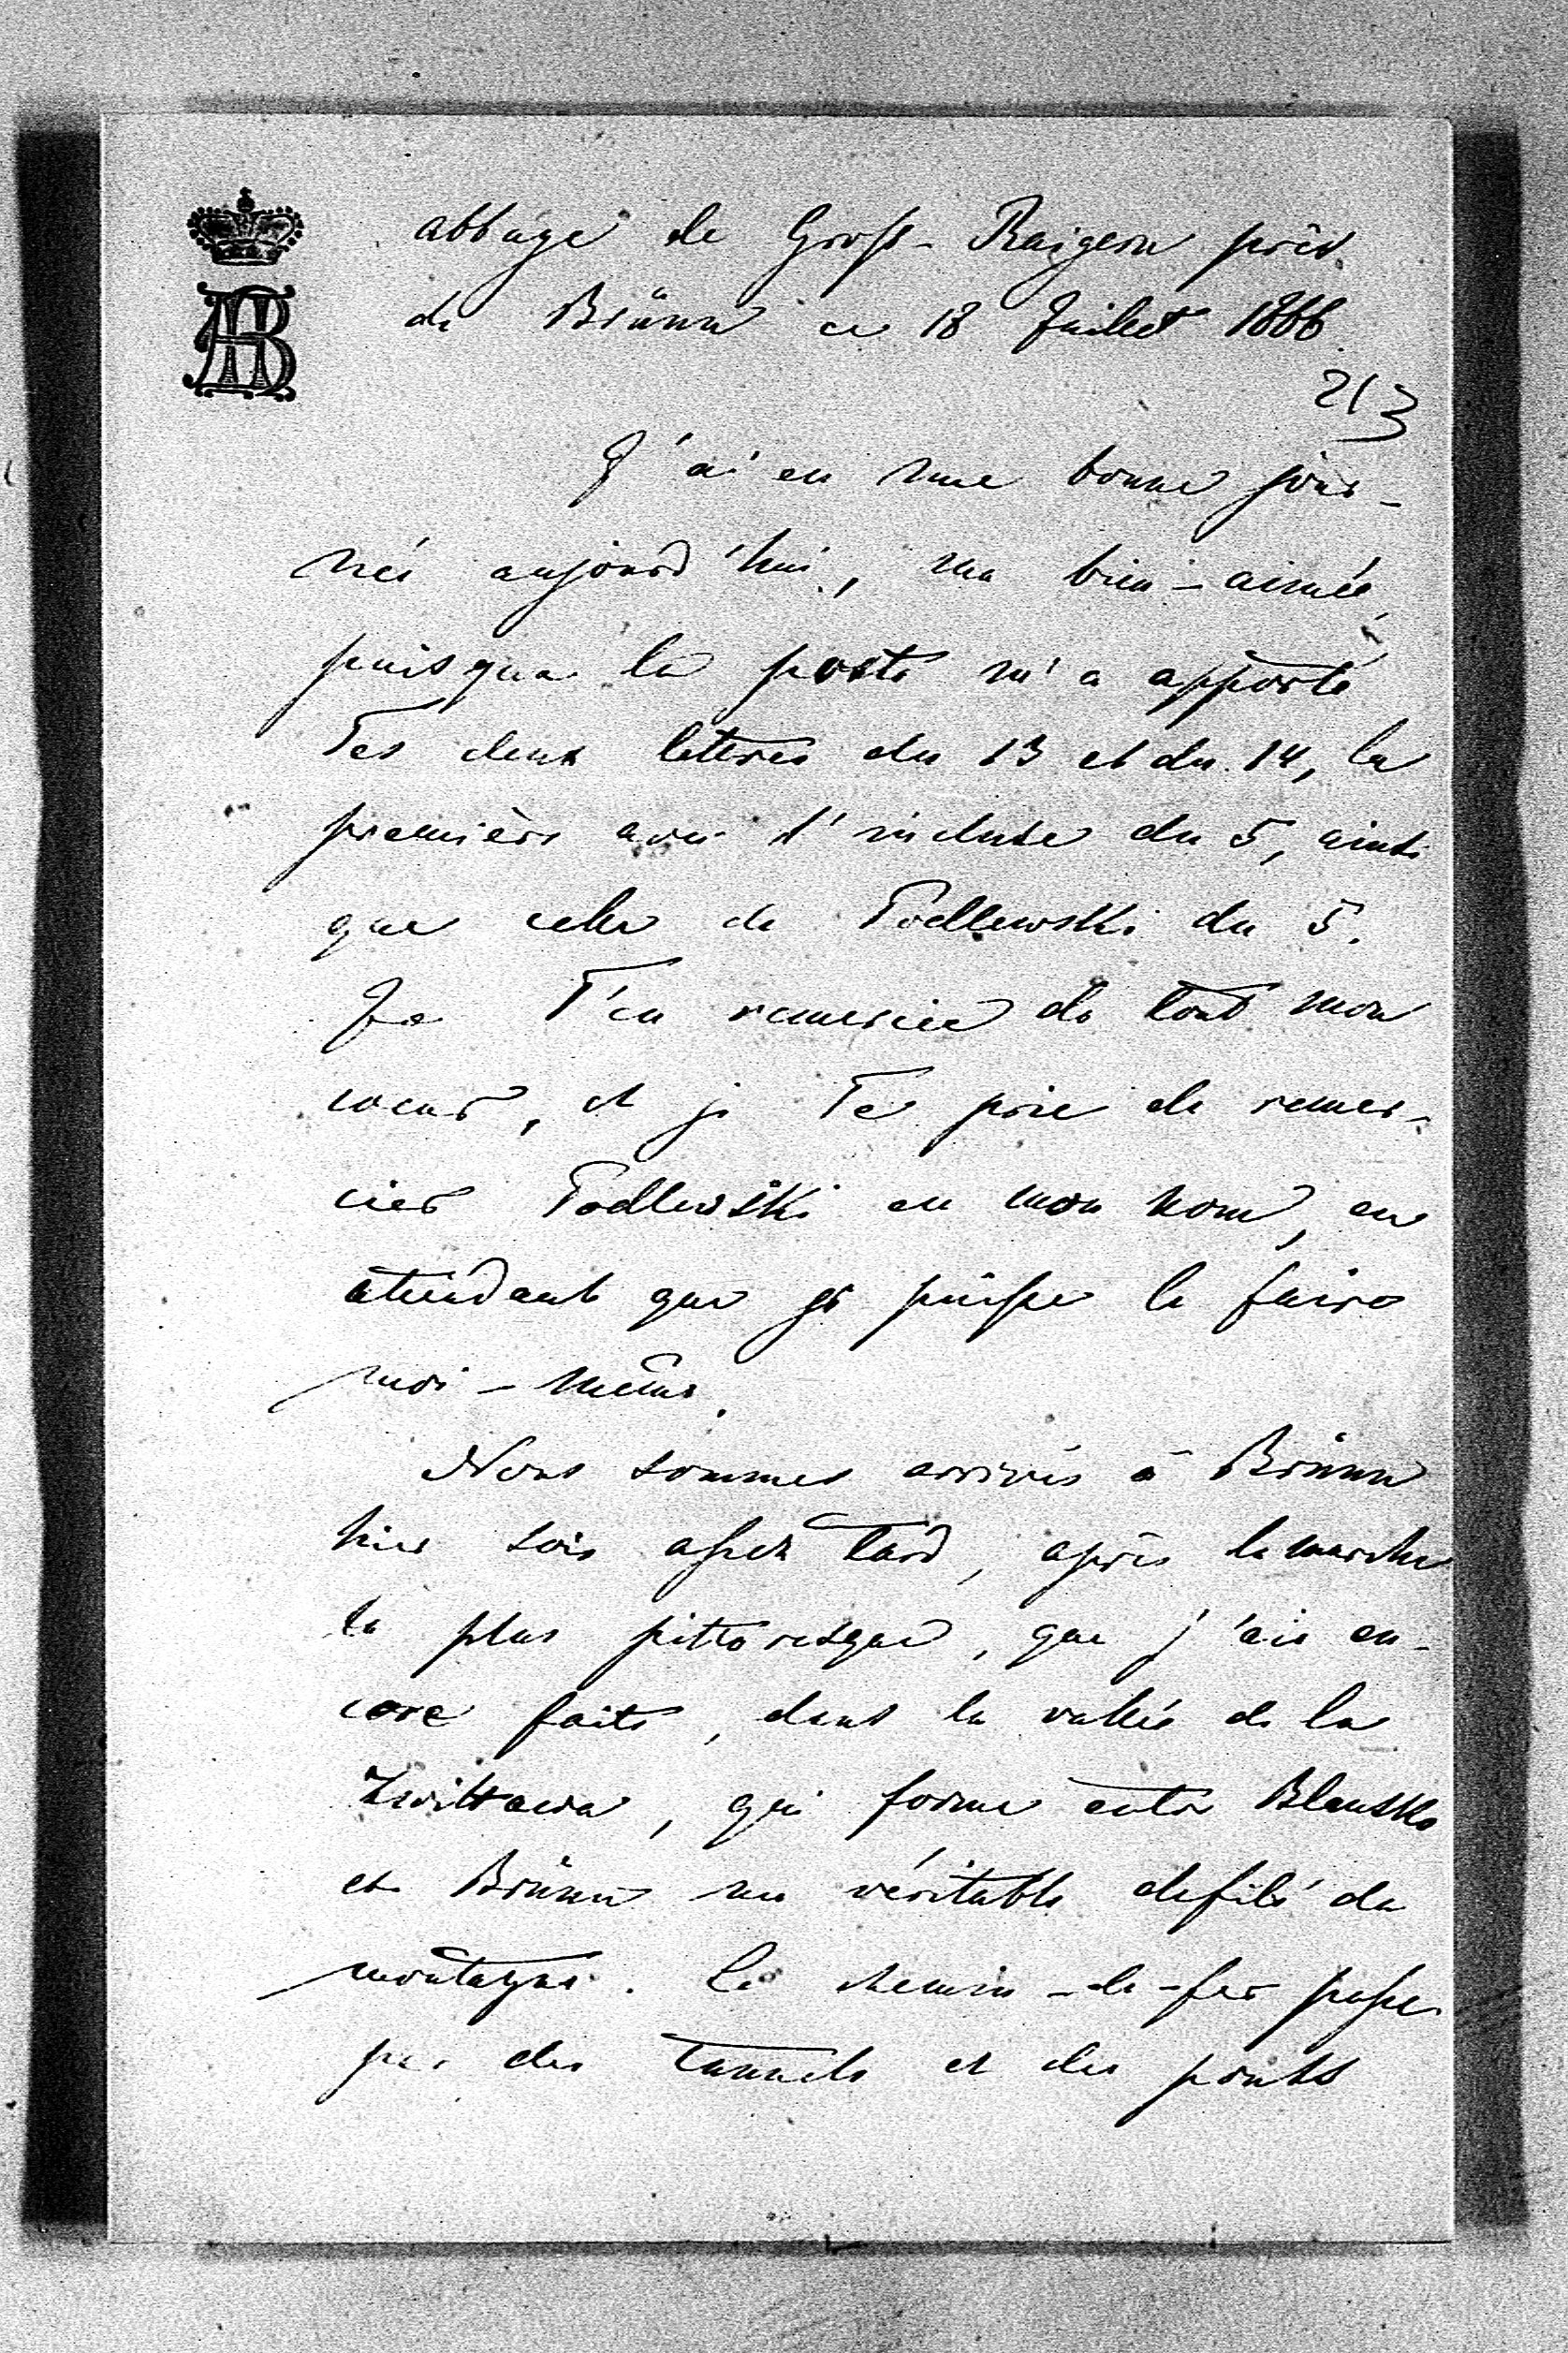 abbaye de Groß-Raigern près
de Brünn ce 18 Juillet 1866.
213
J'ai eu une bonne jour-
née aujourd'hui, ma bien-aimée,
puisque la poste m'a apporté
Tes deux lettres du 13 et du 14, la
première avec l'incluse du 5, ainsi
que celle de Podlewski du 5.
Je T'en remercie de tout mon
coeur, et je Te prie de remer-
cier Podlewski en mon nom, en
attendant que je puisse le faire
moi-même.
Nous sommes arrivés à Brünn
hier soir assez tard, après la marche
la plus pittoresque, que j'aie en-
core faite, dans la vallée de la
Zwittawa, qui forme entre Blansko
et Brünn un véritable défilé de
montagne. Le chemin-de-fer passe
par des tunnels et des ponts